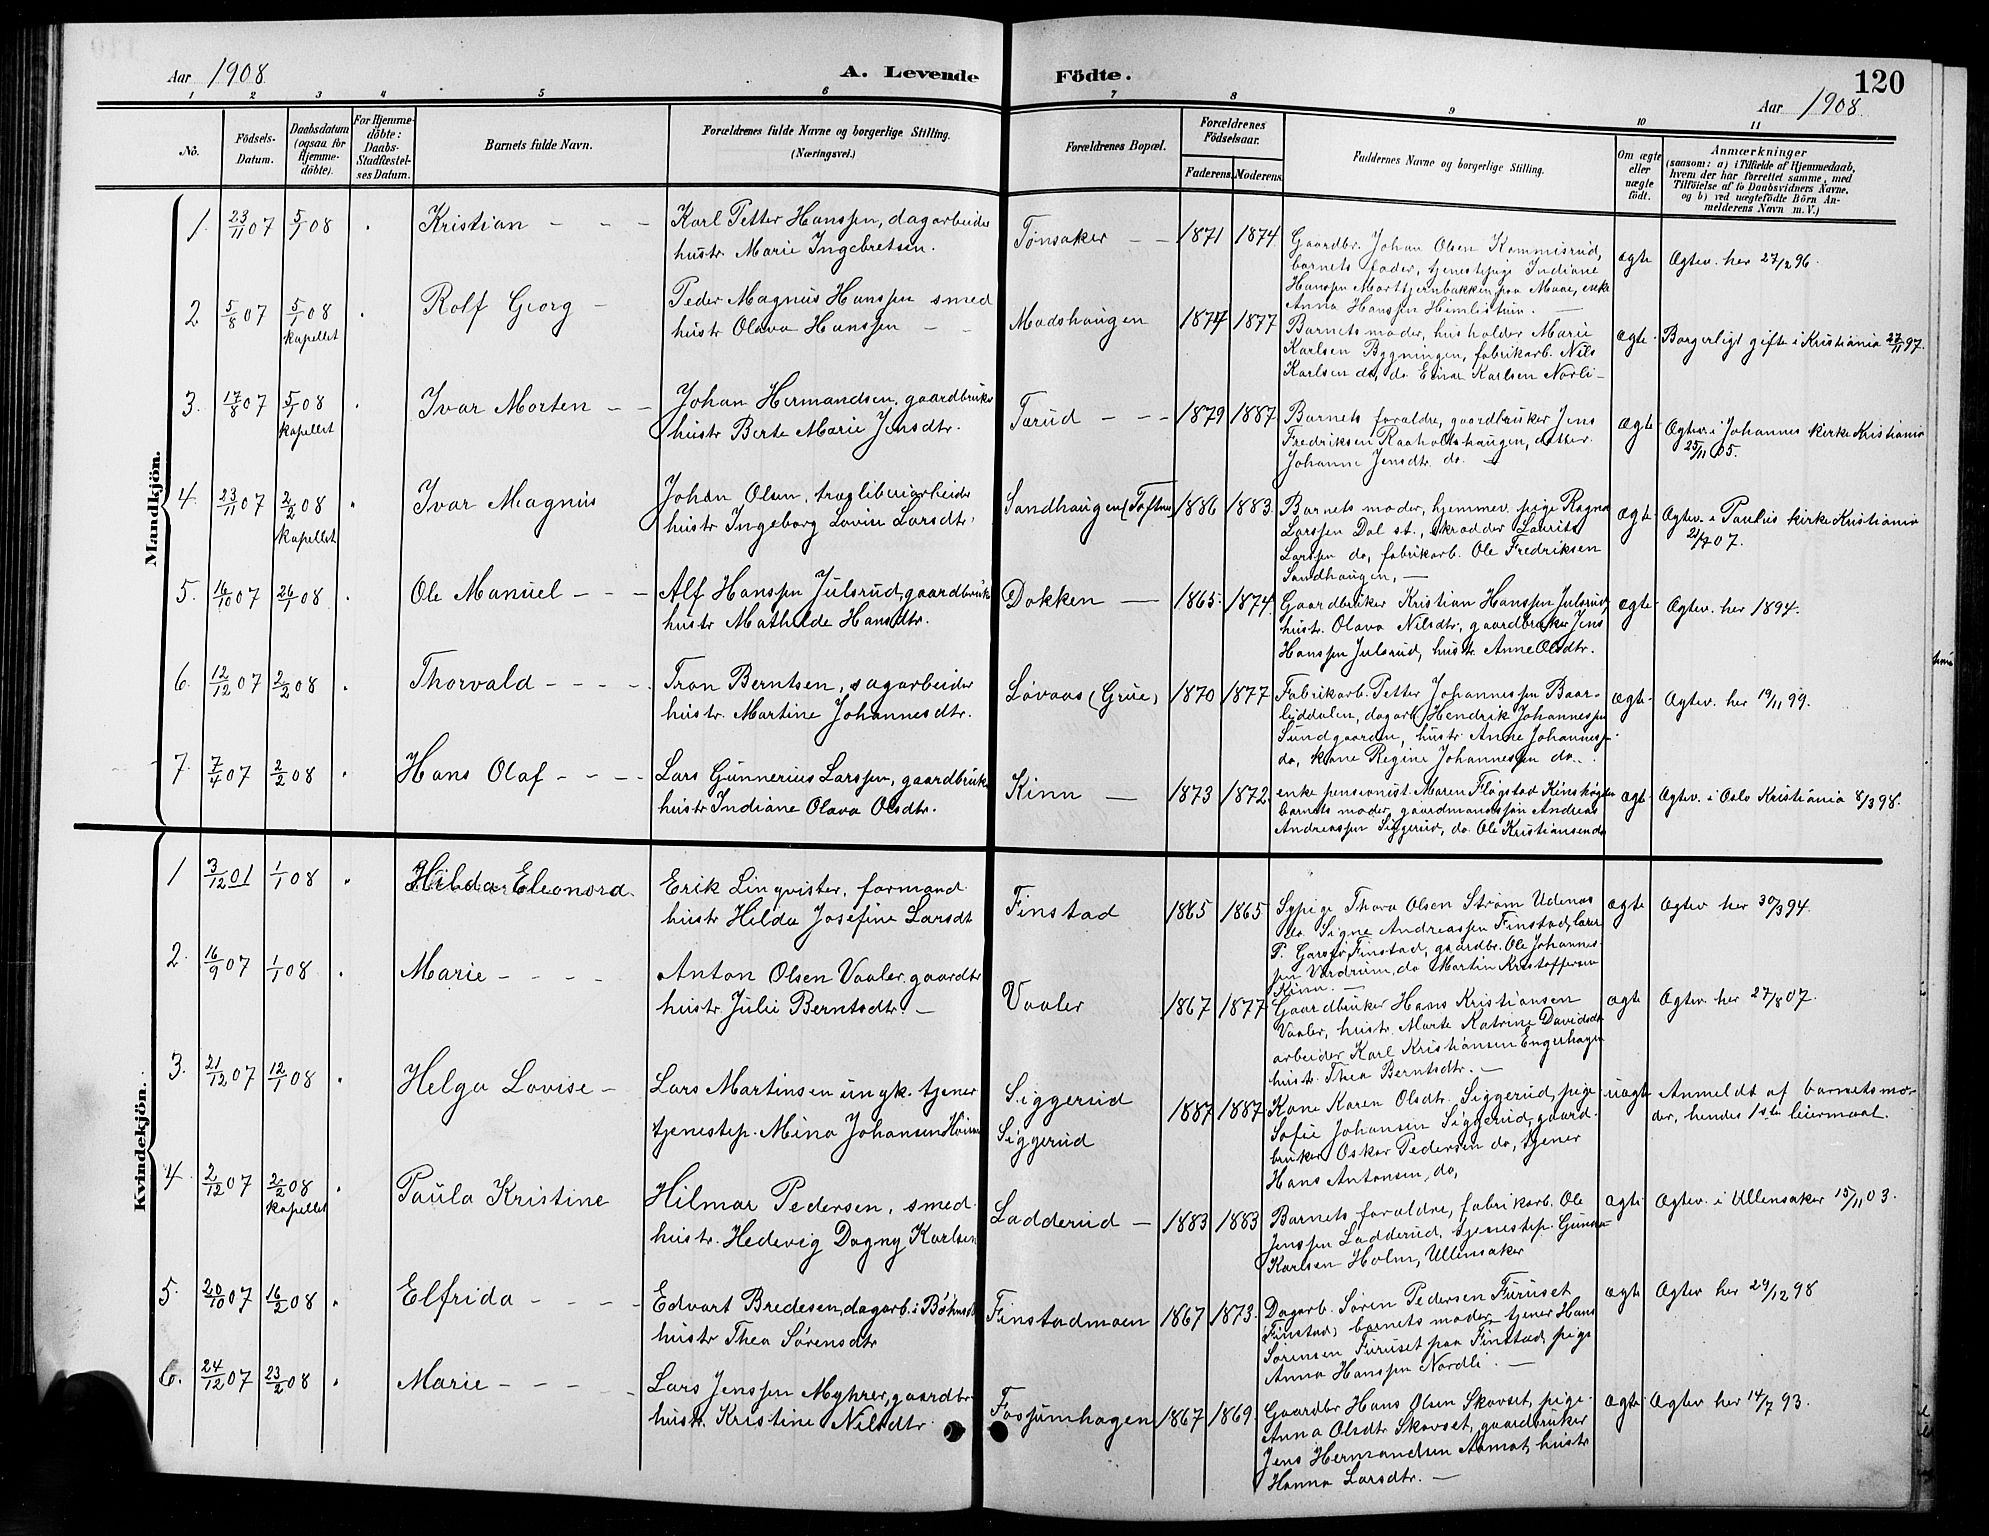 Aar 1908
A. Levende Födte.
120
Aar 1908
1 2 3 4 5 6 7 8 9 10 11
No.
Födsels-
Datum.
Daabsdatum
(ogsaa for
Hjemme-
döbte).
For Hjemme-
döbte:
Daabs-
Stadfæstel-
ses Datum.
Barnets fulde Navn.
Forældrenes fulde Navne og borgerlige Stilling.
(Næringsvei.)
Forældrenes Bopæl.
Forældrenes
Födselsaar.
Faderens. Moderens.
Faddernes Navne og borgerlige Stilling.
Om ægte
eller
uægte
födt.
Anmærkninger
(saasom: a) i Tilfælde af Hjemmedaab,
hvem der har forrettet samme, med
Tilföielse af to Daabsvidners Navne,
og b) ved uægtefödte Börn An-
melderens Navn m. V.)
Mandkjön.
1. 23/11 07 5/1 08 Kristian - - -
Karl Petter Hanssen, dagarbeider
hustr. Marie Ingebretsen.
Tønsaker - - 1871 1874
Gaardbr. Johan Olsen Kommisrud,
barnets fader, tjenestepige Indiane
Hanssen Morttjernbakken paa Maae, enke
Anna Hanssen
ægte Ægtev. her 27/2 96.
2 5/8 07 5/1 08 kapellet Rolf Georg -
Peder Magnus Hanssen smed
hustr Olava Hanssen - -
Madshaugen 1874 1877
Barnets moder, husholder Marie
Karlsen Bygningen, fabrikarb. Nils
Karlsen do, do Einar Karlsen Norli -
ægte. Borgerligt gifte i Kristiania 27/11 97.
3. 17/8 07 5/1 08 kapellet Ivar Morten - -
Johan Hermandsen, gaardbruker
hustr Berte Marie Jensdtr.
Tarud - - - 1879 1887
Barnets foraldre, gaardbruker Jens
Fredriksen Raaholtshaugen, datter
Johanne Jensdtr. do. -
ægte Ægtev. i Johannes kirke Kristiania
25/11 05.
4. 23/11 07 2/2 08 kapellet Ivar Magnus
Johan Olsen,
hustr Ingeborg Lovise Larsdtr.
Sandhaugen (Toftner) 1886 1883.
Barnets moder, hjemmev. pige Ragna
Larssen Dal st., skrædder Laurits
Larssen do, fabrikarb. Ole Fredriksen
Sandhaugen. -
ægte Ægtev. i Paulus kirke Kristiania
07.
5. 16/10 07 26/1 08 Ole Manuel - - -
Alf Hanssen Julsrud, gaardbruk
hustr Mathilde Hansdtr.
Dokken - 1865. 1874.
Gaardbruker Kristian Hanssen Julsrud,
hustr. Olava Nilsdtr., gaardbruker Jens
Hanssen Julsrud, hustr Anne Olsdtr.
ægte Ægtev. her 1894.
6. 12/12 07 2/2 08 Thorvald - - - -
Tron Berntsen, sagarbeider
hustr. Martine Johannesdtr.
Løvaas (Grue) 1870 1877
Fabrikarb. Petter Johannessen Baar-
liddalen, dagarb. Hendrik Johannessen
Sundgaarden, hustr Anne Johannessn.
do, kone Regine Johannessen do.
ægte. Ægtev. her 19/11 99.
7. 7/4 07 2/2 08 Hans Olaf - - -
Lars Gunnerius Larssen, gaardbruk
hustr Indiane Olava Olsdtr.
Kinn - 1873 1872.
enke pensionist. Maren Fløgstad
barnets moder, gaardmandssøn Andreas
Andreassen Siggerud, do. Ole Kristiansen do
ægte Ægtev. i Oslo Kristiania 8/3 98.
Kvindekjön.
1 3/12 01 1/1 08 Hilda Eleonora.
Erik Linqvister, formand.
hustr Hilda Josefine Larsdt
Finstad 1865 1865
Sypige Thora Olsen Strøm Udenæs
do. Signe Andreassen Finstad, lærer
P. Finstad, gaardbr. Ole Johannes-
sen Verdrum, do Martin Kristoffersen
Kinn. -
ægte Ægtev her 30/3 94.
2. 16/9 07 1/1 08 Marie - - - -
Anton Olsen Vaaler, gaardbr
hustr Julie Berntsdtr. -
Vaaler 1867 1877
Gaardbruker Hans Kristiansen
Vaaler, hustr. Marte Katrine Davidsdtr
arbeider Karl Kristiansen Engerhagen
hustr. Thea Berntsdtr. -
ægte Ægtev. her 27/8 07.
3. 21/12 07 12/1 08 Helga Lovise -
Lars Martinsen ungk. tjener
tjenestep. Mina Johansen
Siggerud
Siggerud
1887 1887
Kone Karen Olsdtr. Siggerud, pige
Sofie Johansen Siggerud, gaard-
bruker Oskar Pedersen do, tjener
Hans Antonsen, do,
uægte Anmeldt af barnets mo-
der, hendes 1ste leiermaal.
4 2/12 07 2/2 08 kapellet Paula Kristine
Hilmar Pedersen, smed.
hustr. Hedevig Dagny Karlsen
Ladderud - 1883 1883
Barnets foraldre, fabrikarb. Ole
Jenssen Ladderud, tjenestep. Gunda
Karlsen Holm, Ullensaker
ægte Ægtev. i Ullensaker 15/11 03.
5. 20/10 07 16/2 08 Elfrida - - - -
Edvart Bredesen, dagarb. i
hustr Thea Sørensdtr
Finstadmoen 1867 1873.
Dagarb. Søren Pedersen Furuset
(Finstad) barnets moder, tjener Hans
Sørensen Furuset paa Finstad, pige
Anna Hanssen Nordli. -
ægte Ægtev her 29/12 98
6. 24/12 07 23/2 08 Marie - - - -
Lars Jenssen Myhrer, gaardbr.
hustr. Kristine Nilsdtr.
Fossumhagen 1867 1869.
Gaardbr Hans Olsen Skovset, pige
Anna Olsdtr Skovset, gaardbruker
Jens Hermandsen Aamot, hustr
Hanna Larsdtr. -
ægte Ægtev her 14/7 93.